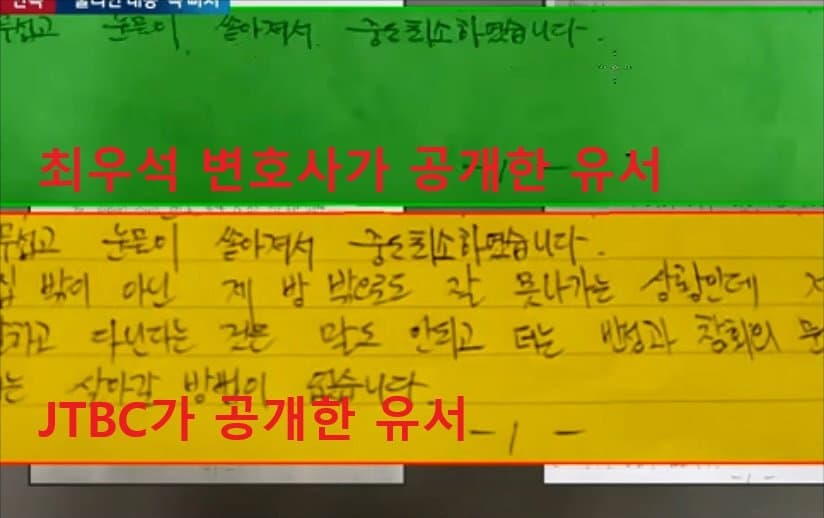 단독
무섭고 눈물이 쏟아져서 중도취소하였습니다.
최우석 변호사가 공개한 유서
무섭고 눈물이 쏟아져서 중도취소하였습니다.
집 밖이 아닌 제 방 밖으로도 잘 못나가는 상황인데
다닌다는 것은 말도 안되고 더는 반성과 참회의
는 살아갈 방법이 없습니다.
JTBC가 공개한 유서
- 1 -